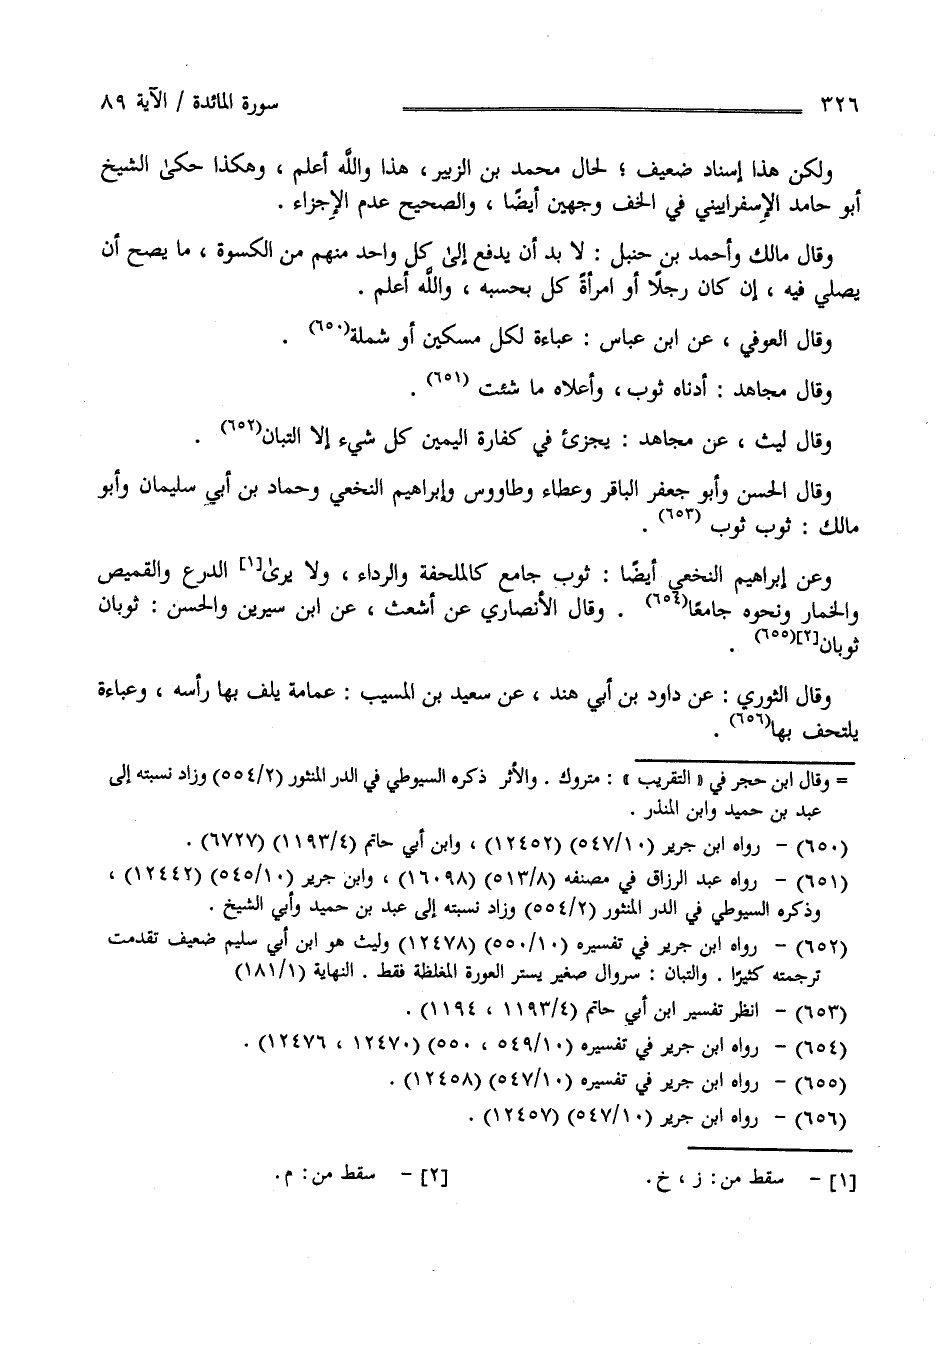 ٣٢٦ سورة المائدة / الآية ٨٩
ولكن هذا إسناد ضعيف ؛ لحال محمد بن الزبير ، هذا والله أعلم ، وهكذا حكىٰ الشيخ
أبو حامد الإسفراييني في الخف وجهين أيضًا ، والصحيح عدم الإجزاء .
وقال مالك وأحمد بن حنبل : لا بد أن يدفع إلىٰ كل واحد منهم من الكسوة ، ما يصح أن
يصلي فيه ، إن كان رجلًا أو امرأةً كل بحسبه ، واللَّه أعلم .
وقال العوفي ، عن ابن عباس : عباءة لكل مسكين أو شملة(٦٥٠) .
وقال مجاهد : أدناه ثوب ، وأعلاه ما شئت (٦٥١) .
وقال ليث ، عن مجاهد : يجزئ في كفارة اليمين كل شيء إلا التبان(٦٥٢) .
وقال الحسن وأبو جعفر الباقر وعطاء وطاووس وإبراهيم النخعي وحماد بن أبي سليمان وأبو
مالك : ثوب ثوب (٦٥٣) .
وعن إبراهيم النخعي أيضًا : ثوب جامع كالملحفة والرداء ، ولا يرىٰ[١] الدرع والقميص
والخمار ونحوه جامعًا(٦٥٤) . وقال الأنصاري عن أشعث ، عن ابن سيرين والحسن : ثوبان
ثوبان[٢](٦٥٥) .
وقال الثوري : عن داود بن أبي هند ، عن سعيد بن المسيب : عمامة يلف بها رأسه ، وعباءة
يلتحف بها(٦٥٦) .
= وقال ابن حجر في « التقريب » : متروك . والأثر ذكره السيوطي في الدر المنثور (٥٥٤/٢) وزاد نسبته إلى
عبد بن حميد وابن المنذر .
(٦٥٠) - رواه ابن جرير (٥٤٧/١٠) (١٢٤٥٢) ، وابن أبي حاتم (١١٩٣/٤) (٦٧٢٧) .
(٦٥١) - رواه عبد الرزاق في مصنفه (٥١٣/٨) (١٦٠٩٨) ، وابن جرير (٥٤٥/١٠) (١٢٤٤٢) ،
وذكره السيوطي في الدر المنثور (٥٥٤/٢) وزاد نسبته إلى عبد بن حميد وأبي الشيخ .
(٦٥٢) - رواه ابن جرير في تفسيره (٥٥٠/١٠) (١٢٤٧٨) وليث هو ابن أبي سليم ضعيف تقدمت
ترجمته كثيرًا . والتبان : سروال صغير يستر العورة المغلظة فقط . النهاية (١٨١/١)
(٦٥٣) - انظر تفسير ابن أبي حاتم (١١٩٣/٤ ، ١١٩٤) .
(٦٥٤) - رواه ابن جرير في تفسيره (٥٤٩/١٠ ، ٥٥٠) (١٢٤٧٠ ، ١٢٤٧٦) .
(٦٥٥) - رواه ابن جرير في تفسيره (٥٤٧/١٠) (١٢٤٥٨) .
(٦٥٦) - رواه ابن جرير (٥٤٧/١٠) (١٢٤٥٧) .
[١] - سقط من: ز ، خ. [٢] - سقط من: م.